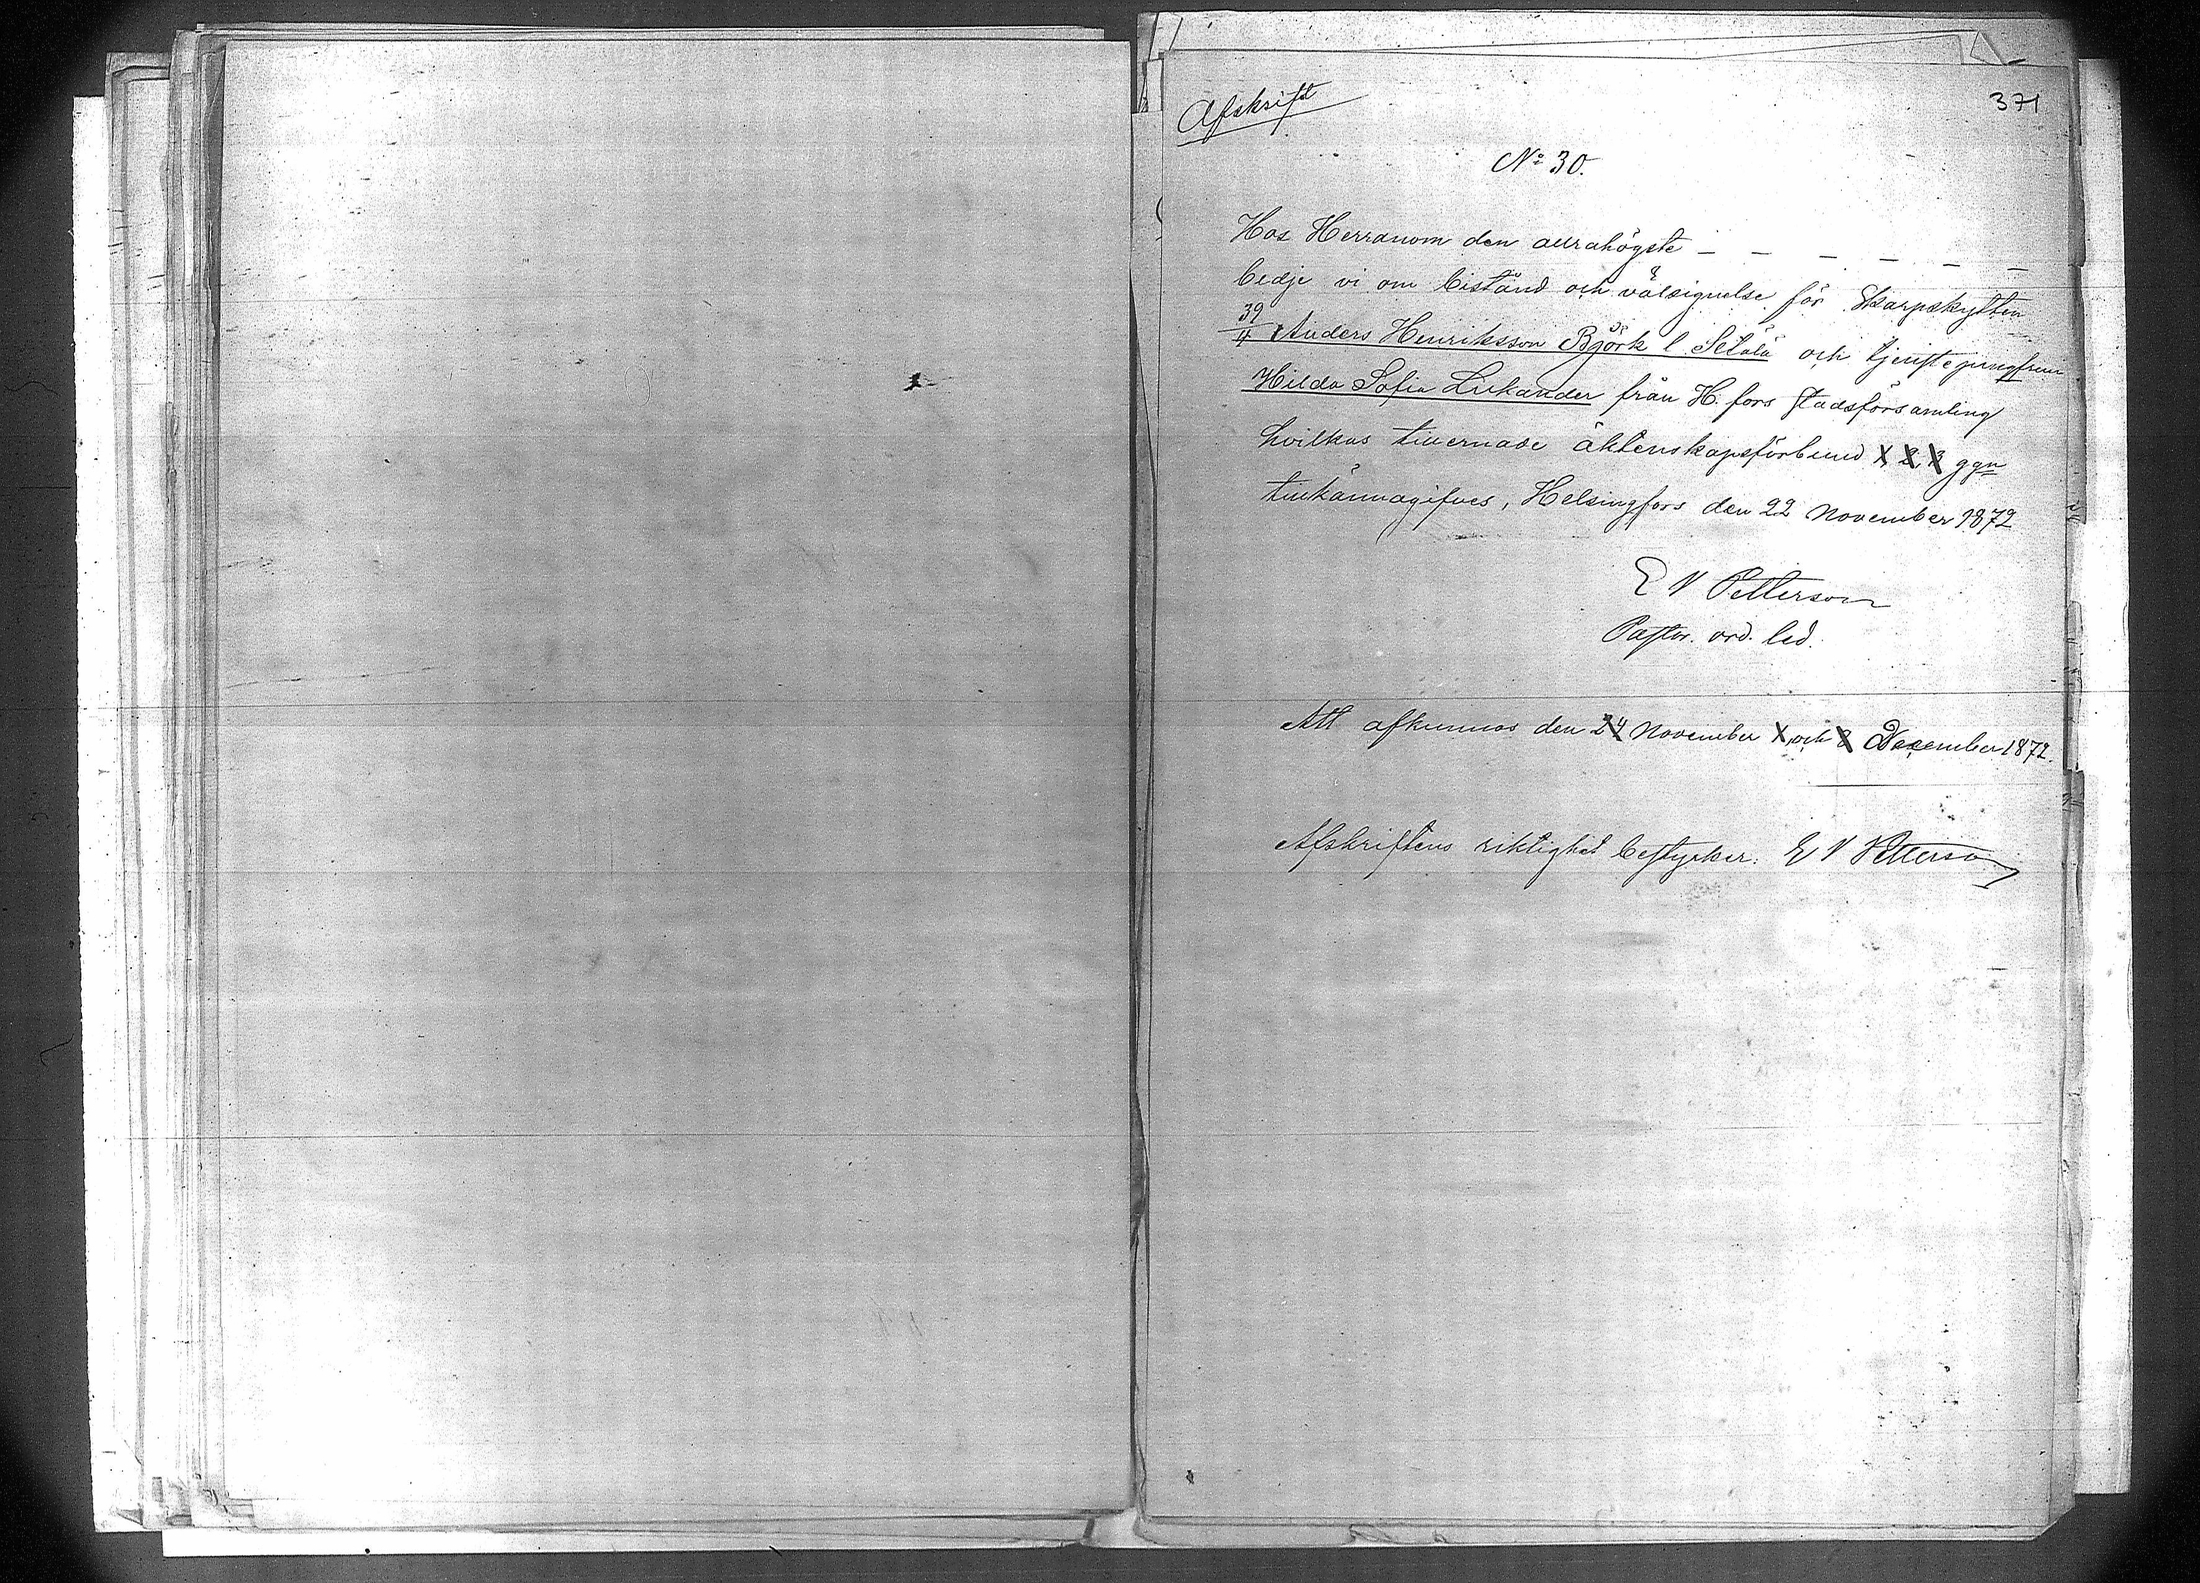 371
Afskrift
No 30.
Hos Herranom den allrahögste – – – – – –
bedje vi om bistånd och välsignelse för Skarpskytten
39/4 Anders Henriksson Björk l. Setälä och tjenstepungfrun
Hilda Sofia Lukander från H:fors stadsförsamling
hvilkas tillernade äktenskapsförbund 1, 2, 3 ggn
tillkännagifves, Helsingfors den 22 November 1872
E V Petterson
Pastor. ord. led.
Att afkunnas den 24 November 1, och 8 December 1872.
Afskriftens riktighet bestyrker: E V Petterson